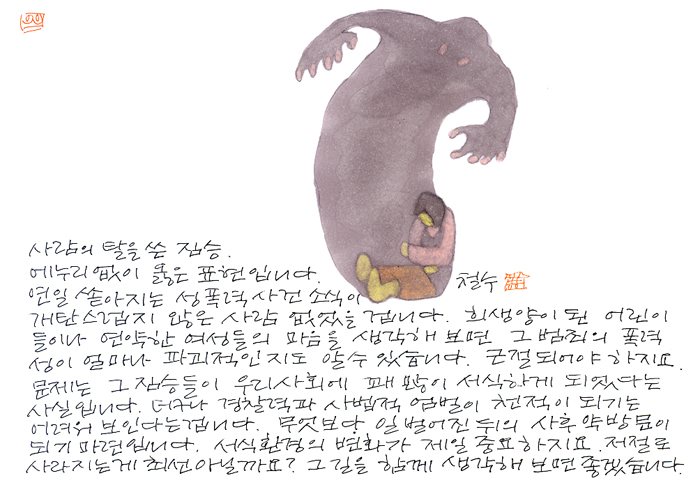 사람의 탈을 쓴 짐승.
에누리 없이 옳은 표현입니다.
연일 쏟아지는 성폭력 사건 소식이
철수
개탄스럽지 않은 사람 없었을 겁니다. 희생양이 된 어린이
들이나 연약한 여성들의 마음을 생각해 보면 그 범죄의 폭력
성이 얼마나 파괴적인지도 알 수 있습니다. 근절되어야 하지요.
문제는 그 짐승들이 우리사회에 꽤 많이 서식하게 되었다는
사실입니다. 더구나 경찰력과 사법적 엄벌이 천적이 되기는
어려워 보인다는 겁니다. 무엇보다, 일 벌어진 뒤의 사후약방문이
되기 마련입니다. 서식환경의 변화가 제일 중요하지요. 저절로
사라지는게 최선 아닐까요? 그 길을 함께 생각해 보면 좋겠습니다.